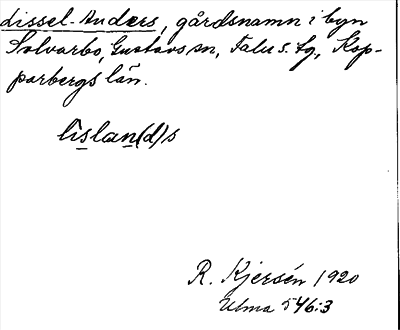 dissel-Anders, gårdsnamn i byn
Solvarbo, Gustavs sn, Falu s. tg, Kop-
parbergs län.
lislan(d)s
R. Kjersén 1920
Ulma 546:3